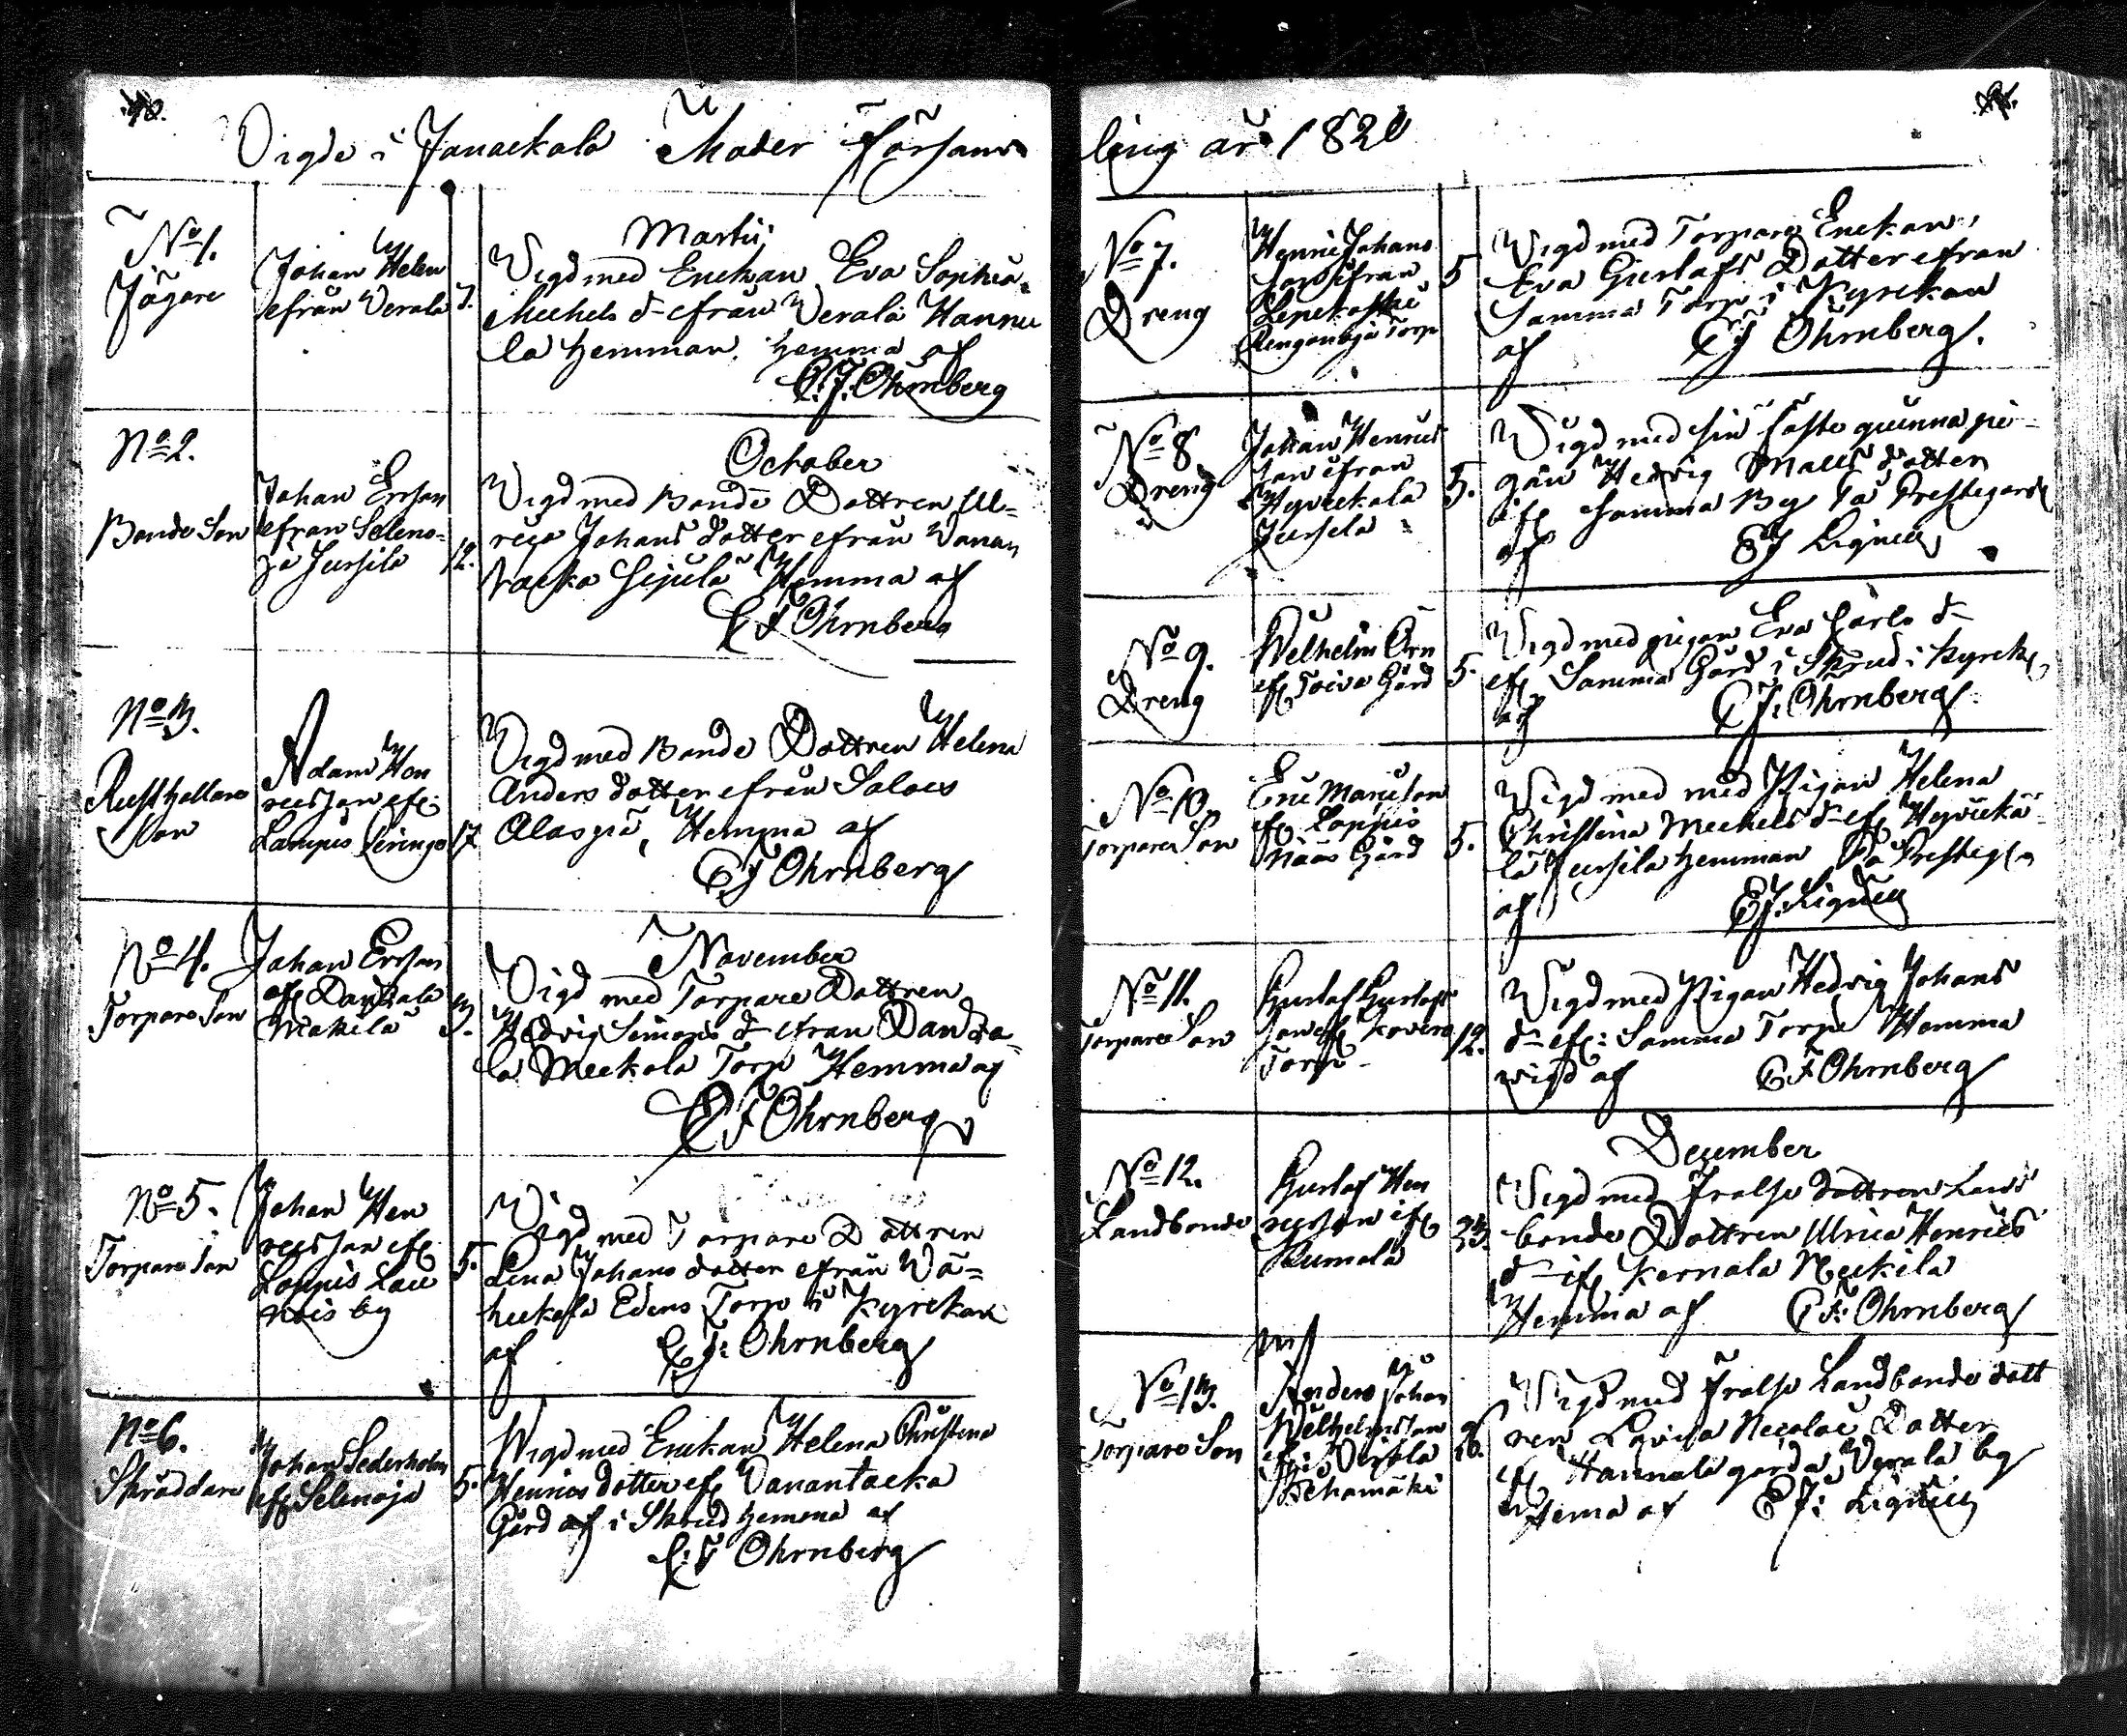 Vigde i Janackala Moder Församling år 1820
No 1.
Jägare
Johan Helen
ifrån Verala
7.
Martii
Vigd med Enckan Eva Sophia
Michels dr ifrån Verala Hannu
la Hemman, hemma af
C.J. Ohrnberg
No 2.
Bonde Son
Johan Ersson
ifrån Seleno=
ja Jussila
12.
October
Vigd med Bonde Dottren Ul=
rica Johans dotter ifrån Vanan
tacka Sipula Hemma af
C J Ohrnberg
No 3.
Rusthållare
Son
Adam Hen
ricsson ifr:
Lampis
17
Vigd med Bonde Dottren Helena
Anders dotter ifrån Salois
Alasgiä, Hemma af
C J Ohrnberg
No 4.
Torpare Son
Johan Ersson
ifr
Mäkelä
3.
November
Vigd med Torpare Dottren
Hedvig Simons dr ifrån
la Torp Hemma af
C J Ohrnberg
No 5.
Torpare Son
Johan Hen
ricsson ifr:
Loppis Lau
nois by
5.
Vigd med Torpare Dottren
Lena Johans dotter ifrån Vä=
Torp i Kyrckan
af C J: Ohrnberg
No 6.
Skräddare
Johan Sederholm
ifr Selenoja
5.
Vigd med Enckan Helena Christina
Henrics dotter ifr Vanantacka
Gård af i Skrud hemma af
C: J Ohrnberg
No 7.
Dreng
Henric Johans
son ifrån
Torp
5
Vigd med Torpare Enckan
Eva Gustafs Dotter ifrån
Samma Torp i Kyrckan
af C J Ohrnberg.
No 8
Dreng
Johan Henrics
son ifrån
Hyvickälä
Jussila
5.
Vigd med sin fäste quinna pi=
gan Hedvig Matts dotter
ifr samma By På Prestegård
af C J Lignell
No 9.
Dreng
Wilhelm Örn
ifr Toivo Gård
5.
Vigd med pigan Eva Carls dr
ifr Samma Gård i Skrud i Kyrck
af C J: Ohrnberg
No 10.
Torpare Son
Eric Maricson
ifr Loppis
Nääs Gård
5.
Vigd med med Pigan Helena
Christina Michels dr ifr Hyvickä
lä Jussila hemman På Presteg
af C J: Lignell
No 11.
Torpare Son
Gustaf Gustafs
son ifr
Torp
12.
Vigd med Pigan Hedvig Johans
dr ifr: Samma Torp Hemma
vigd af C J Ohrnberg
No 12.
Landbonde
Gustaf Hen
ricsson ifr
Rumala
23.
December
Vigd med Frälse dottren Land
bonde Dottren Ulrica Henrics
dr ifr Kernala Nickilä
Hemma af C J: Ohrnberg
No 13.
Torpare Son
Anders Johan
Wilhelmsson
ifr:
26.
Vigd med Frälse Landbonde dott
ren Lovisa Nicolai Dotter
ifr Hannula gård Verala by
Hema af C J: Lignell